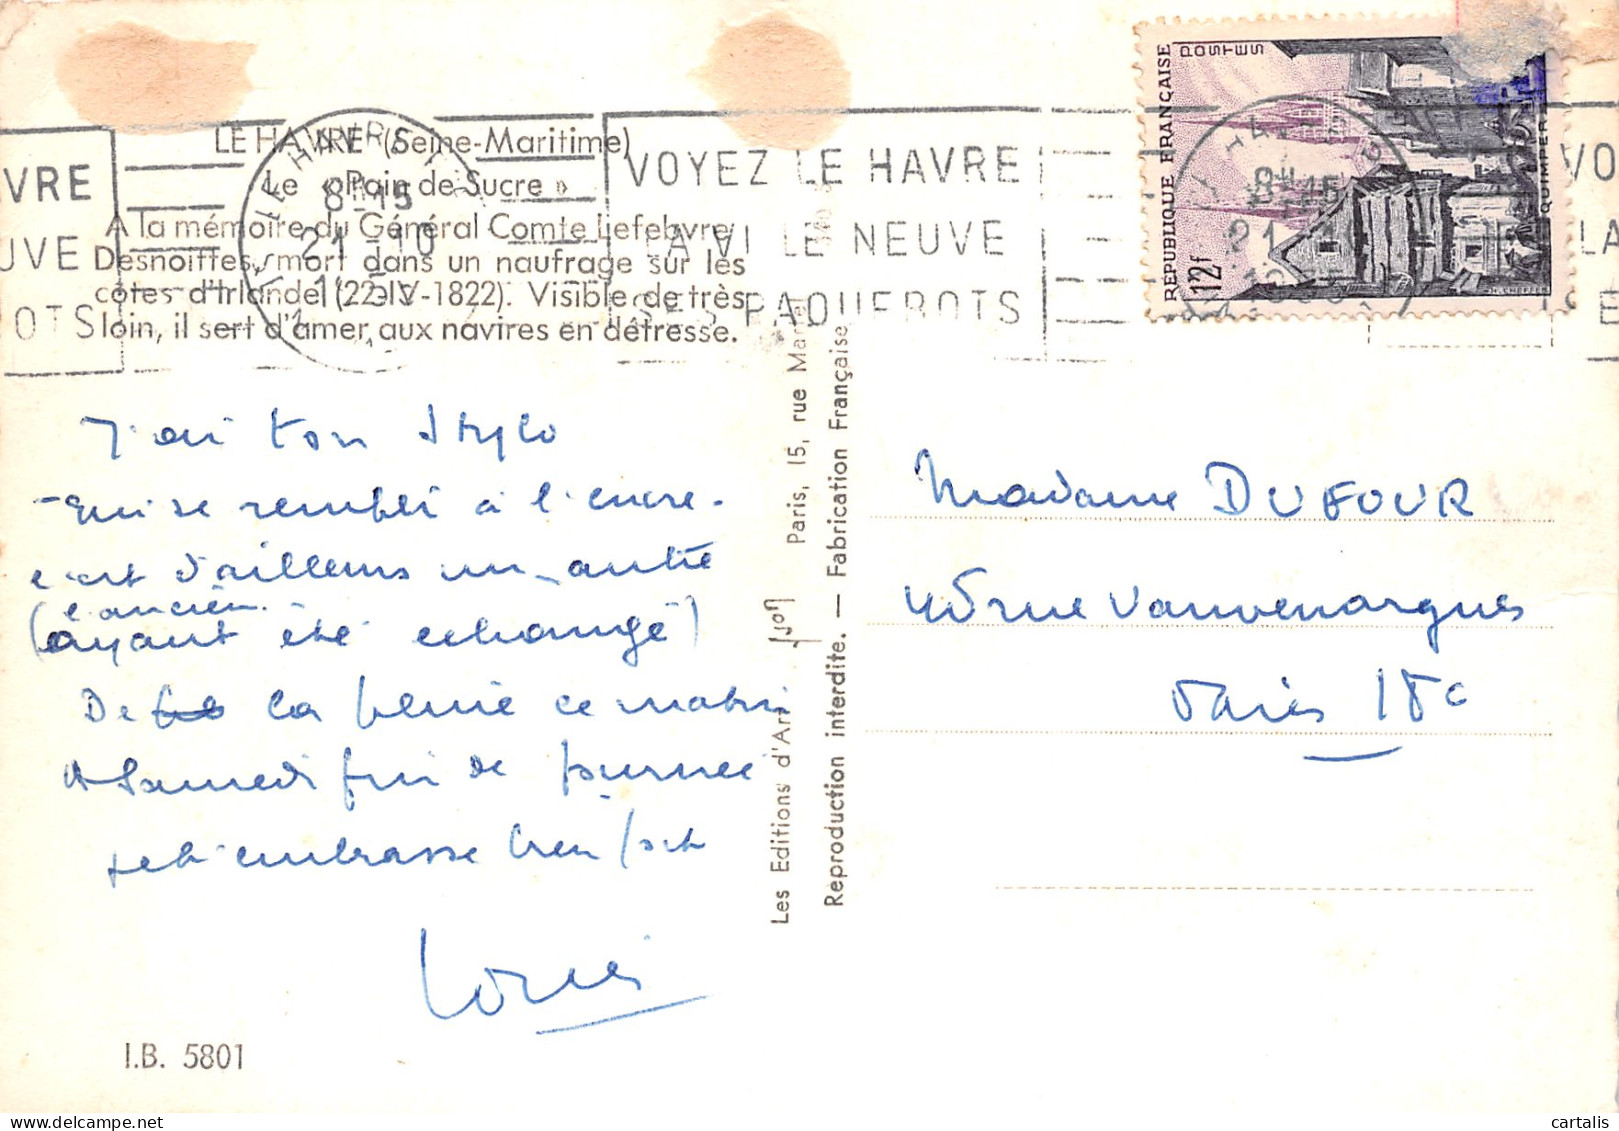 LE HAVRE (Seine-Maritime)
Le « Pain de Sucre »
A la mémoire du Général Comte Lefebvre
Desnoëttes, mort dans un naufrage sur les
côtes d'Irlande (22-IV-1822). Visible de très
loin, il sert d'amer aux navires en détresse.
LE HAVRE
8H15
21 -10
1955
VRE
UVE
OTS
VOYEZ LE HAVRE
SA VILLE NEUVE
SES PAQUEBOTS
VO
LA
E
RÉPUBLIQUE FRANÇAISE
POSTES
12f
QUIMPER
8H15
21
1955
J'ai ton stylo
qui se remplit à l'encre.
c'est d'ailleurs un autre
(l'ancien
ayant été échangé)
De la pluie ce matin
A Samedi fin de journée
je t'embrasse bien fort
I.B. 5801
Les Editions d'Art Yvon Paris, 15, rue Martel
Reproduction interdite. — Fabrication Française
Madame DUFOUR
45 rue Vauvenargues
Paris 18e